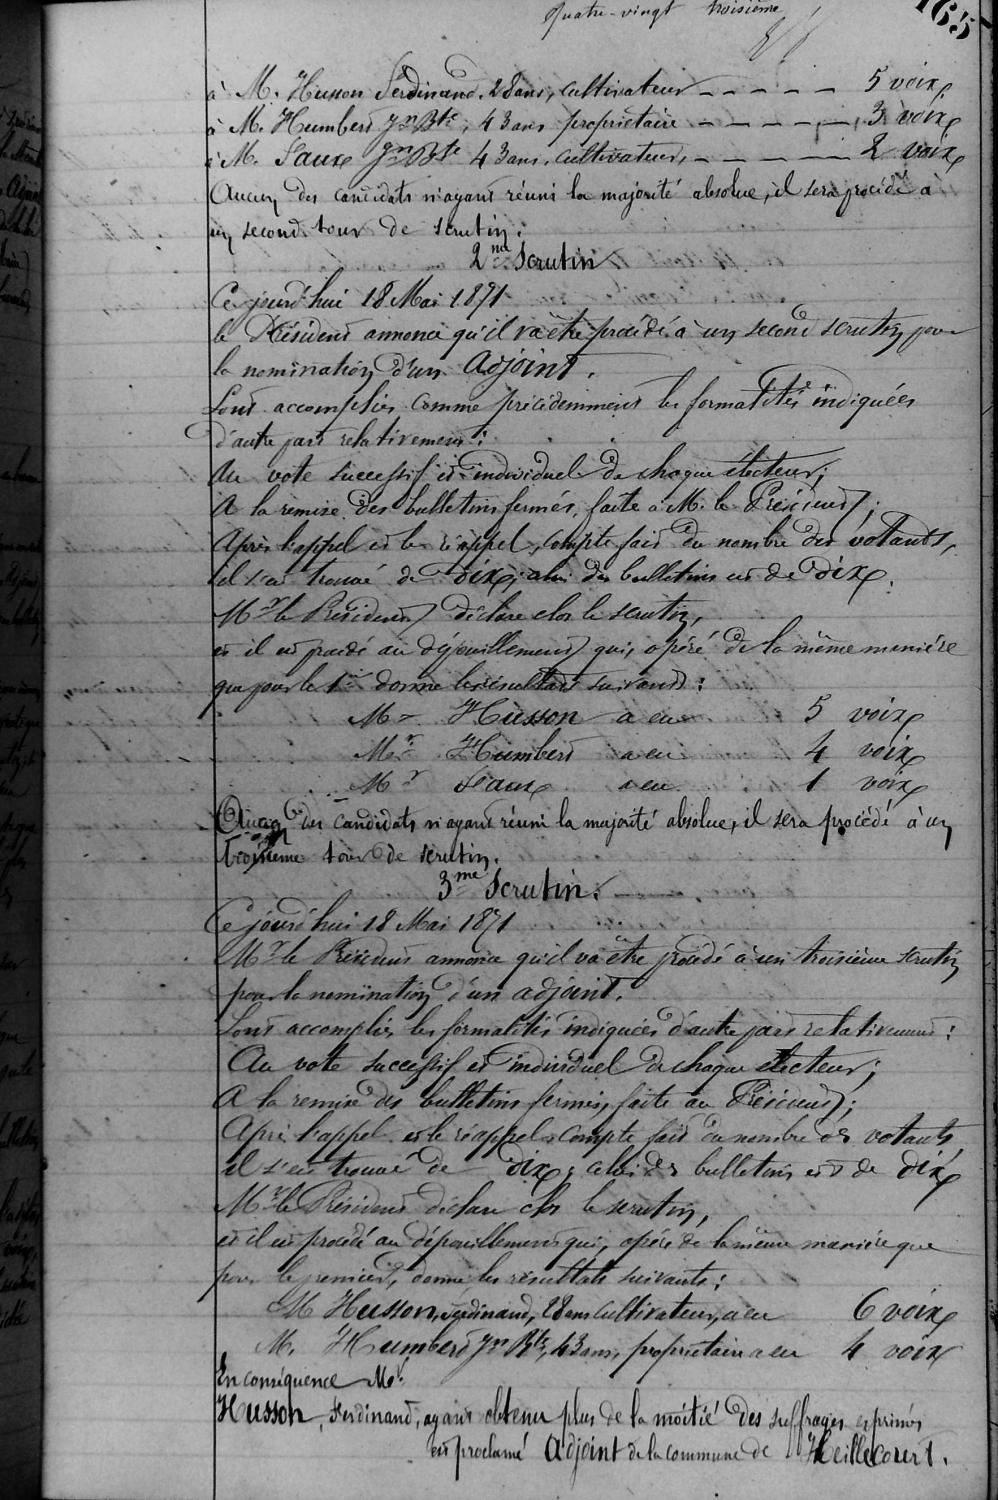 Quatre-vingt troisième
165
à M. Husson Ferdinand, 28 ans, cultivateur - - - - - 5 voix,
à M. Humbert Jn Bte, 43 ans propriétaire - - - - - 3 voix,
à M. Saux Jn Bte 43 ans, cultivateur, - - - - - 2 voix
Aucun des candidats n'ayant réuni la majorité absolue, il sera procédé à
un second tour de scrutin.
2nd Scrutin
Ce jourd'hui 18 Mai 1871
le Président annonce qu'il va être procédé à un second scrutin pour
la nomination d'un Adjoint.
Sont accomplies comme précédemment les formalités indiquées
d'autre part relativement :
Au vote successif et individuel de chaque électeur ;
A la remise des bulletins fermés, faite à M. le Président ;
Après l'appel et le réappel, compte fait du nombre des votants,
il s'est trouvé de dix, celui des bulletins est de dix.
Mr le Président déclare clos le scrutin,
et il est procédé au dépouillement qui, opéré de la même manière
que pour le 1er donne les résultats suivants :
Mr Husson a eu 5 voix
Mr Humbert a eu 4 voix
Mr Saux a eu 1 voix
Aucun des candidats n'ayant réuni la majorité absolue, il sera procédé à un
troisième tour de scrutin.
3me Scrutin.
Ce jourd'hui 18 Mai 1871
Mr le Président annonce qu'il va être procédé à un troisième scrutin
pour la nomination d'un adjoint.
Sont accomplies les formalités indiquées d'autre part relativement :
Au vote successif et individuel de chaque électeur ;
A la remise des bulletins fermés, faite au Président ;
Après l'appel et le réappel, compte fait du nombre des votants
il s'est trouvé de dix, celui des bulletins est de dix
Mr le Président déclare clos le scrutin,
et il est procédé au dépouillement qui, opéré de la même manière que
pour le premier, donne les résultats suivants :
M Husson, Ferdinand, 28 ans cultivateur, a eu 6 voix
M. Humbert Jn Bte, 43 ans, propriétaire a eu 4 voix
En conséquence Mr
Husson, Ferdinand, ayant obtenu plus de la moitié des suffrages exprimés
est proclamé Adjoint de la commune de Heillecourt.